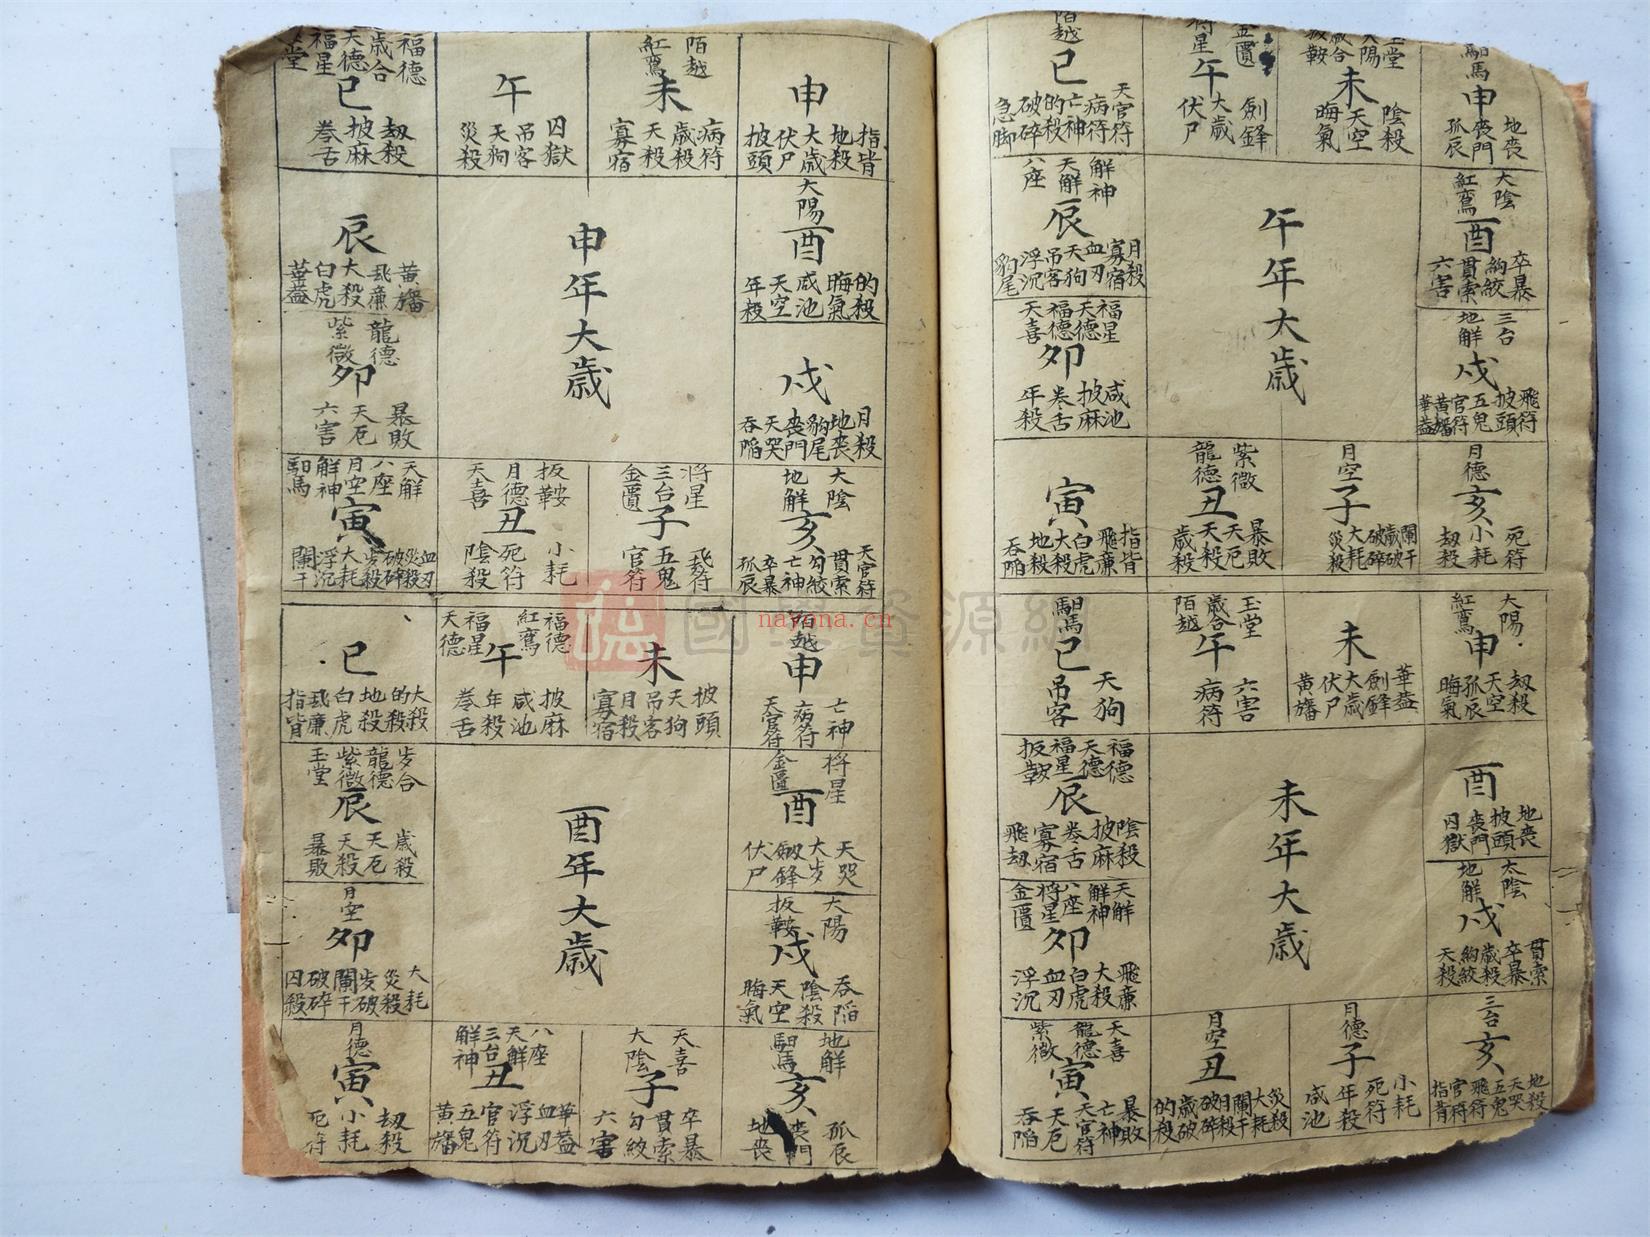 馹馬
申
地喪 喪門 孤辰
玉堂 太陽 歲合 扳鞍
未
陰殺 天空 晦氣
金匱 將星
午
劍鋒 大歲 伏尸
陌越
巳
天官符 病符 亡神 的殺 破碎 急脚
大陰 紅鸞
酉
卒暴 絇絞 貫索 六害
午年大歲
解神 天解 八座
辰
月殺 寡宿 血刃 天狗 吊客 浮沉 豹尾
三台 地解
戌
飛符 披頭 五鬼 官符 黃旛 華蓋
福星 天德 福德 天喜
卯
咸池 披麻 卷舌 年殺
月德
亥
死符 小耗 刼殺
月空
子
闌干 歲破 破碎 大耗 災殺
紫微 龍德
丑
暴敗 天厄 天殺 歲殺
寅
指背 飛廉 白虎 大殺 地殺 吞陷
大陽 紅鸞
申
刼殺 天空 孤辰 晦氣
未
華蓋 劍鋒 大歲 伏尸 黃旛
玉堂 歲合 陌越
午
六害 病符
馹馬
巳
天狗 吊客
酉
地喪 披頭 喪門 囚獄
未年大歲
福德 天德 福星 扳鞍
辰
陰殺 披麻 卷舌 寡宿 飛刼
太陰 地解
戌
貫索 卒暴 歲殺 絇絞 天殺
天解 解神 八座 將星 金匱
卯
飛廉 大殺 白虎 血刃 浮沉
三台
亥
地殺 天哭 五鬼 飛符 官符 指背
月德
子
小耗 死符 年殺 咸池
月空
丑
災殺 大耗 闌干 月殺 破碎 歲破 的殺
天喜 龍德 紫微
寅
暴敗 亡神 天官符 天厄 吞陷
申
指背 地殺 大歲 伏尸 披頭
陌越 紅鸞
未
病符 歲殺 天殺 寡宿
午
囚獄 吊客 天狗 災殺
福德 歲合 天德 福星 堂
巳
刼殺 披麻 卷舌
太陽
酉
的殺 晦氣 咸池 天空 年殺
申年大歲
辰
黃旛 飛廉 大殺 白虎 華蓋
戌
月殺 地喪 豹尾 喪門 天哭 吞陷
龍德 紫微
卯
暴敗 天厄 六害
大陰 地解
亥
天官符 貫索 勾絞 亡神 卒暴 孤辰
將星 三台 金匱
子
飛符 五鬼 官符
扳鞍 月德 天喜
丑
小耗 死符 陰殺
天解 八座 月空 解神 馹馬
寅
血刃 災殺 破碎 歩殺 大耗 浮沉 闌干
陌越
申
亡神 病符 天官符
未
披頭 天狗 吊客 月殺 寡宿
福德 紅鸞 福星 天德
午
披麻 咸池 年殺 卷舌
巳
大殺 的殺 地殺 白虎 飛廉 指背
將星 金匱
酉
天哭 大歩 劍鋒 伏尸
酉年大歲
歩合 龍德 紫微 玉堂
辰
歲殺 天厄 天殺 暴敗
太陽 扳鞍
戌
吞陷 陰殺 天空 晦氣
月空
卯
大耗 災殺 歩破 闌干 破碎 囚殺
地解 馹馬
亥
孤辰 喪門 地喪
天喜 大陰
子
卒暴 貫索 勾絞 六害
八座 天解 三台 解神
丑
華蓋 血刃 浮沉 官符 五鬼 黃旛
月德
寅
刼殺 小耗 死符
國學資源網
nayona.cn